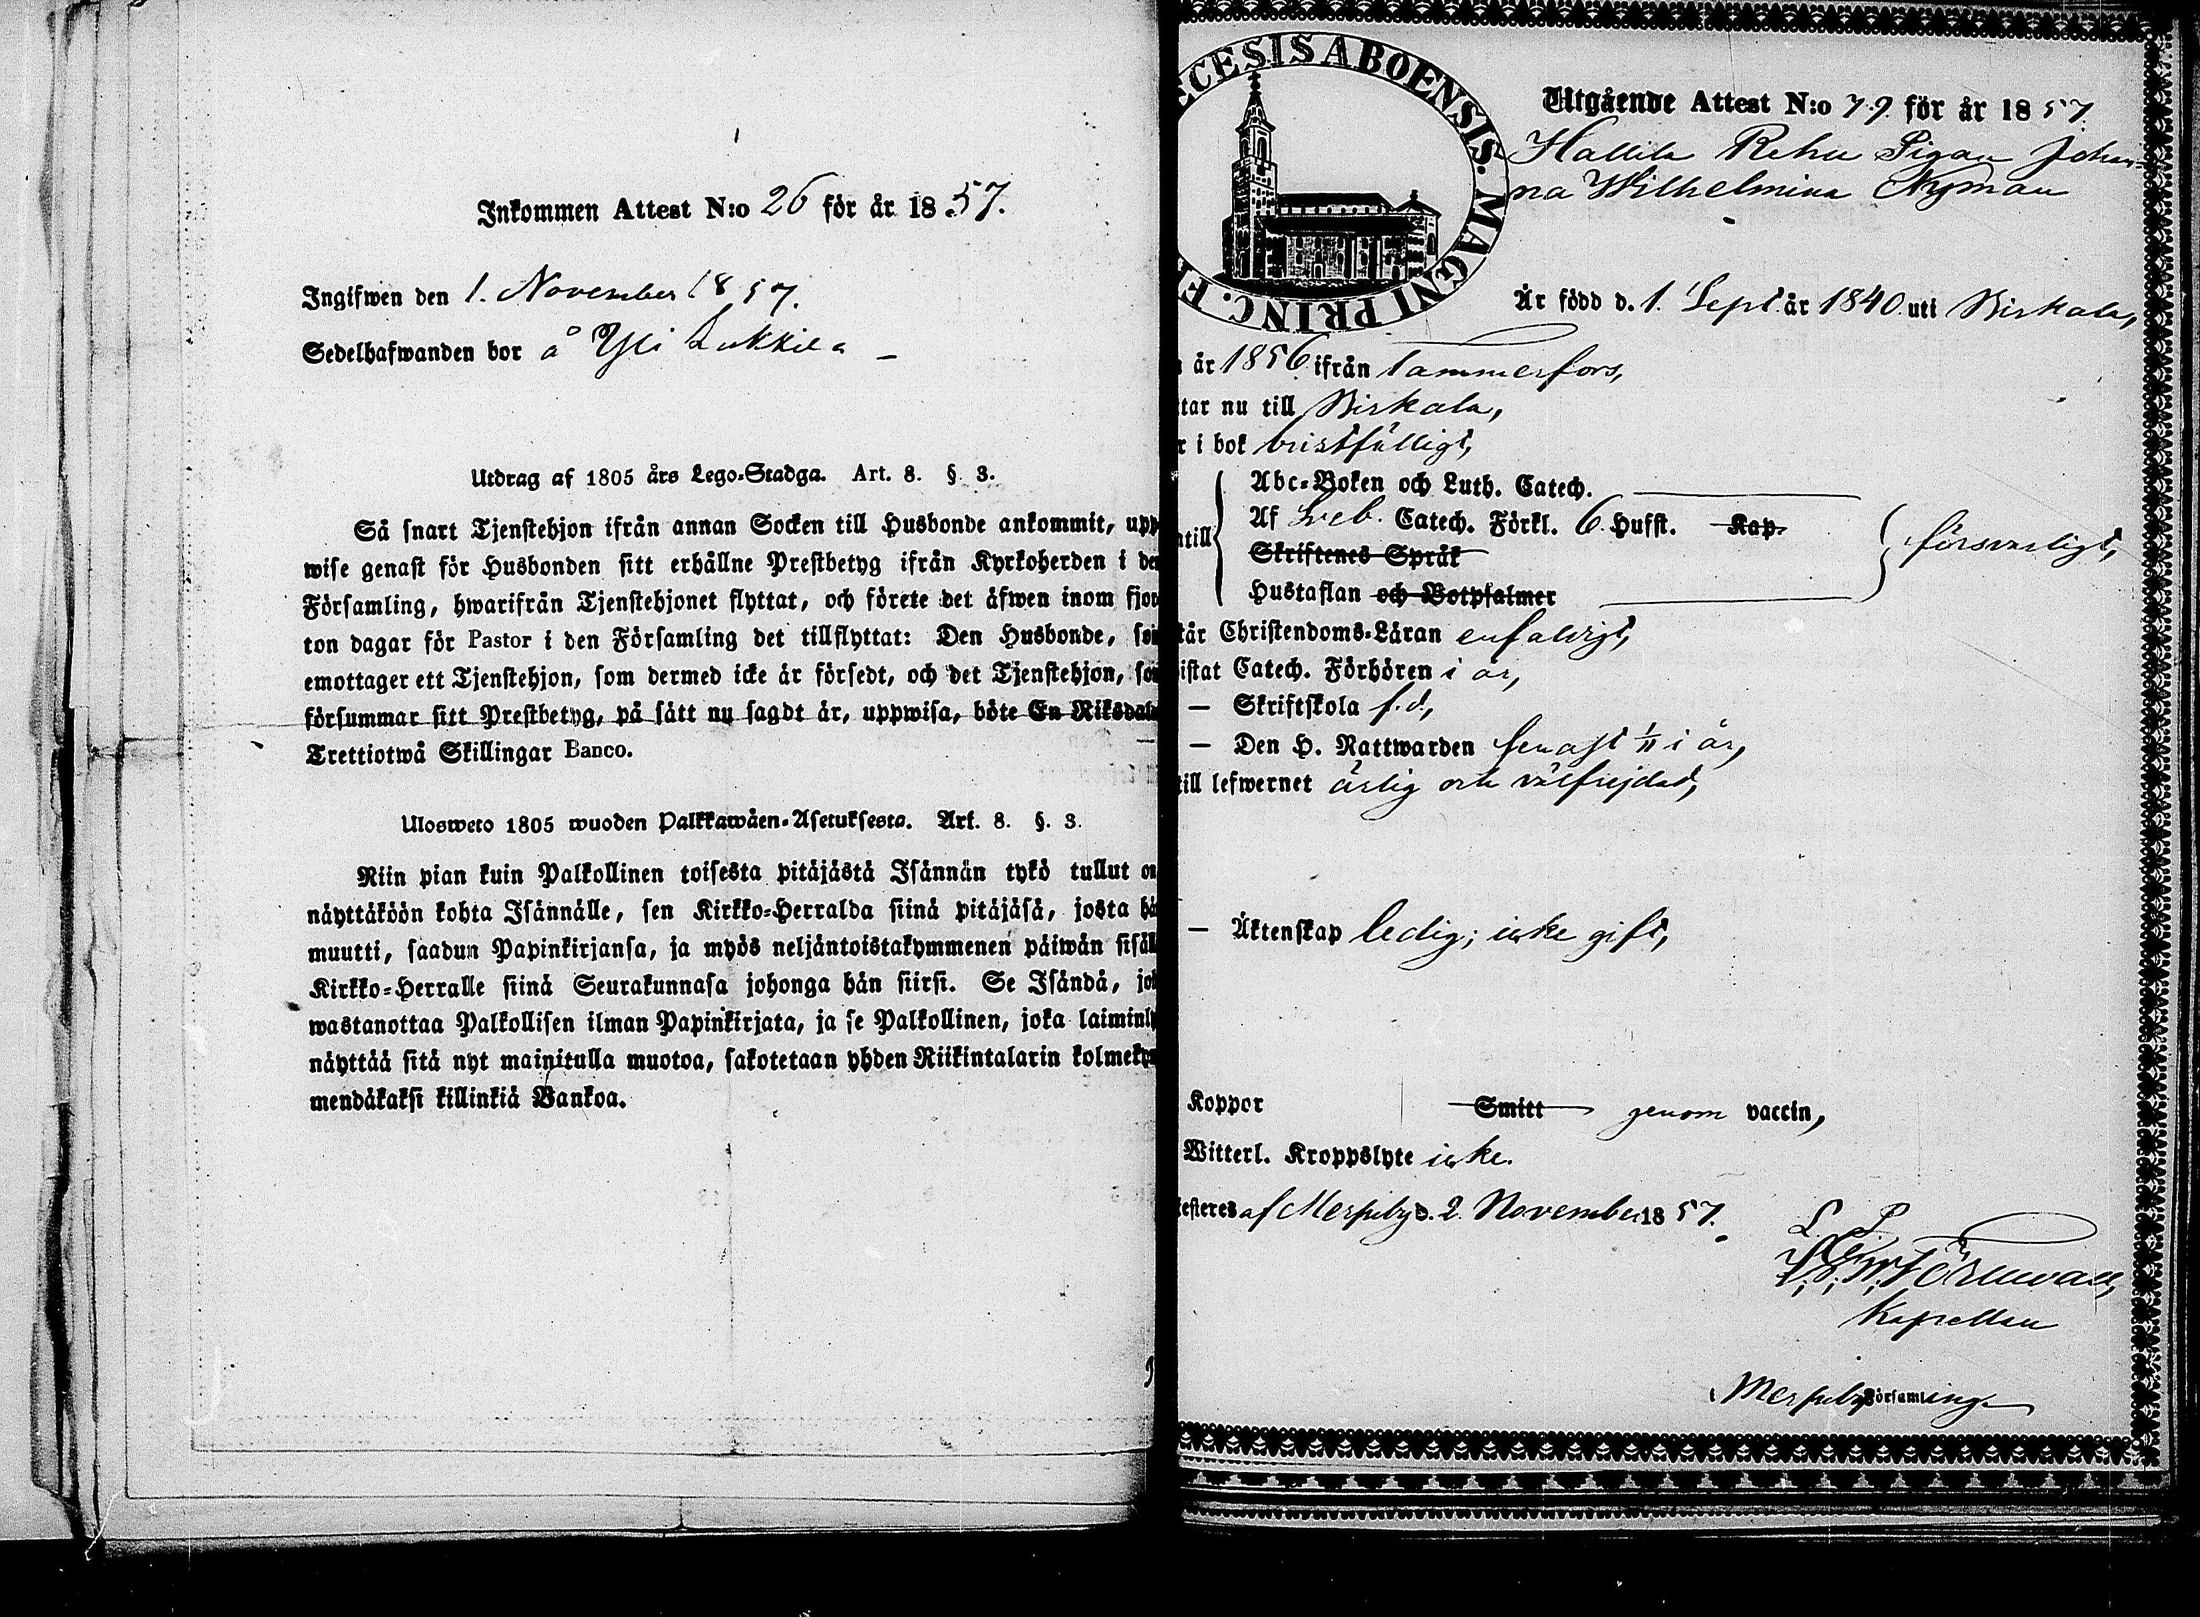 Inkommen Attest N:o 26 för år 1857.
Ingifwen den 1. November 1857.
Sedelhafwanden bor å Yli Lukkila
Utdrag af 1805 års Lego-Stadga. Art. 8. § 3.
Så snart Tjenstehjon ifrån annan Socken till Husbonde ankommit, upp
wise genast för Husbonden sitt erhållne Prestbetyg ifrån Kyrkoherden i den
Församling, hwarifrån Tjenstehjonet flyttat, och förete det äfwen inom fjor
ton dagar för Pastor i den Församling det tillflyttat: Den Husbonde, som
emottager ett Tjenstehjon, som dermed icke är försedt, och det Tjenstehjon, som
försummar sitt Prestbetyg, på sätt nu sagdt är, uppwisa, böte En Riksdal
Trettiotwå Skillingar Banco.
Ulosweto 1805 wuoden Palkkawäen-Asetuksesta. Art. 8. §. 3.
Niin pian kuin Palkollinen toisesta pitäjästä Isännän tykö tullut on
näyttäköön kohta Isännälle, sen Kirkko-Herralda siinä pitäjäsä, josta hä
muutti, saadun Papinkirjansa, ja myös neljäntoistakymmenen päiwän sisäl
Kirkko-Herralle siinä Seurakunnasa johonga hän siirsi. Se Isändä, jo
wastanottaa Palkollisen ilman Papinkirjata, ja se Palkollinen, joka laiminly
näyttää sitä nyt mainitulla muotoa, sakotetaan yhden Riikintalarin kolmeky
mendäkaksi killinkiä Bankoa.
ECESIS ABOENSIS. MAGNI PRINC. F
Utgående Attest N:o 79. för år 1857.
Hallila Rehu Pigan Johan-
na Wilhelmina Nyman
Är född d. 1. Sept. år 1840 uti Birkala,
år 1856 ifrån Tammerfors,
tar nu till Birkala,
r i bok bristfälligt,
Abc-Boken och Luth. Catech.
ntill Af Sveb. Catech. Förkl. 6 Hufst. Kap. försvarligt,
Skriftenes Språk
Hustaflan och Botpsalmer
tår Christendoms-Läran enfaldigt,
istat Catech. Förhören i år,
— Skriftskola f.d.,
— Den H. Nattwarden senast 1/11 i år,
till lefwernet ärlig och välfrejdad,
— Äktenskap ledig; icke gift,
Koppor Smitt genom vaccin,
Witterl. Kroppslyte icke.
testeres af Messuby d. 2. November 1857.
L. P.
Kapellan
i Messuby Församling